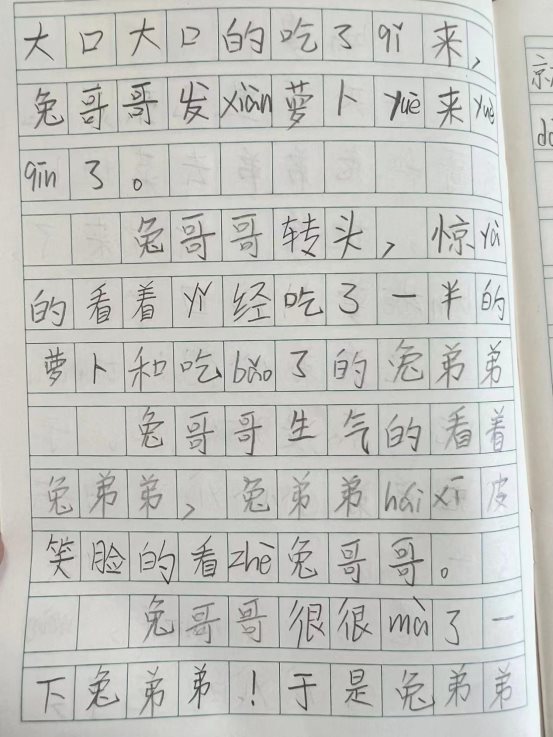 大口大口的吃了qǐ来，
兔哥哥发xiàn萝卜yuè来yuè
qīn了。
兔哥哥转头，惊yà
的看着yǐ经吃了一半的
萝卜和吃bǎo了的兔弟弟
兔哥哥生气的看着
兔弟弟，兔弟弟hái xī皮
笑脸的看zhè兔哥哥。
兔哥哥很很mà了一
下兔弟弟！于是兔弟弟